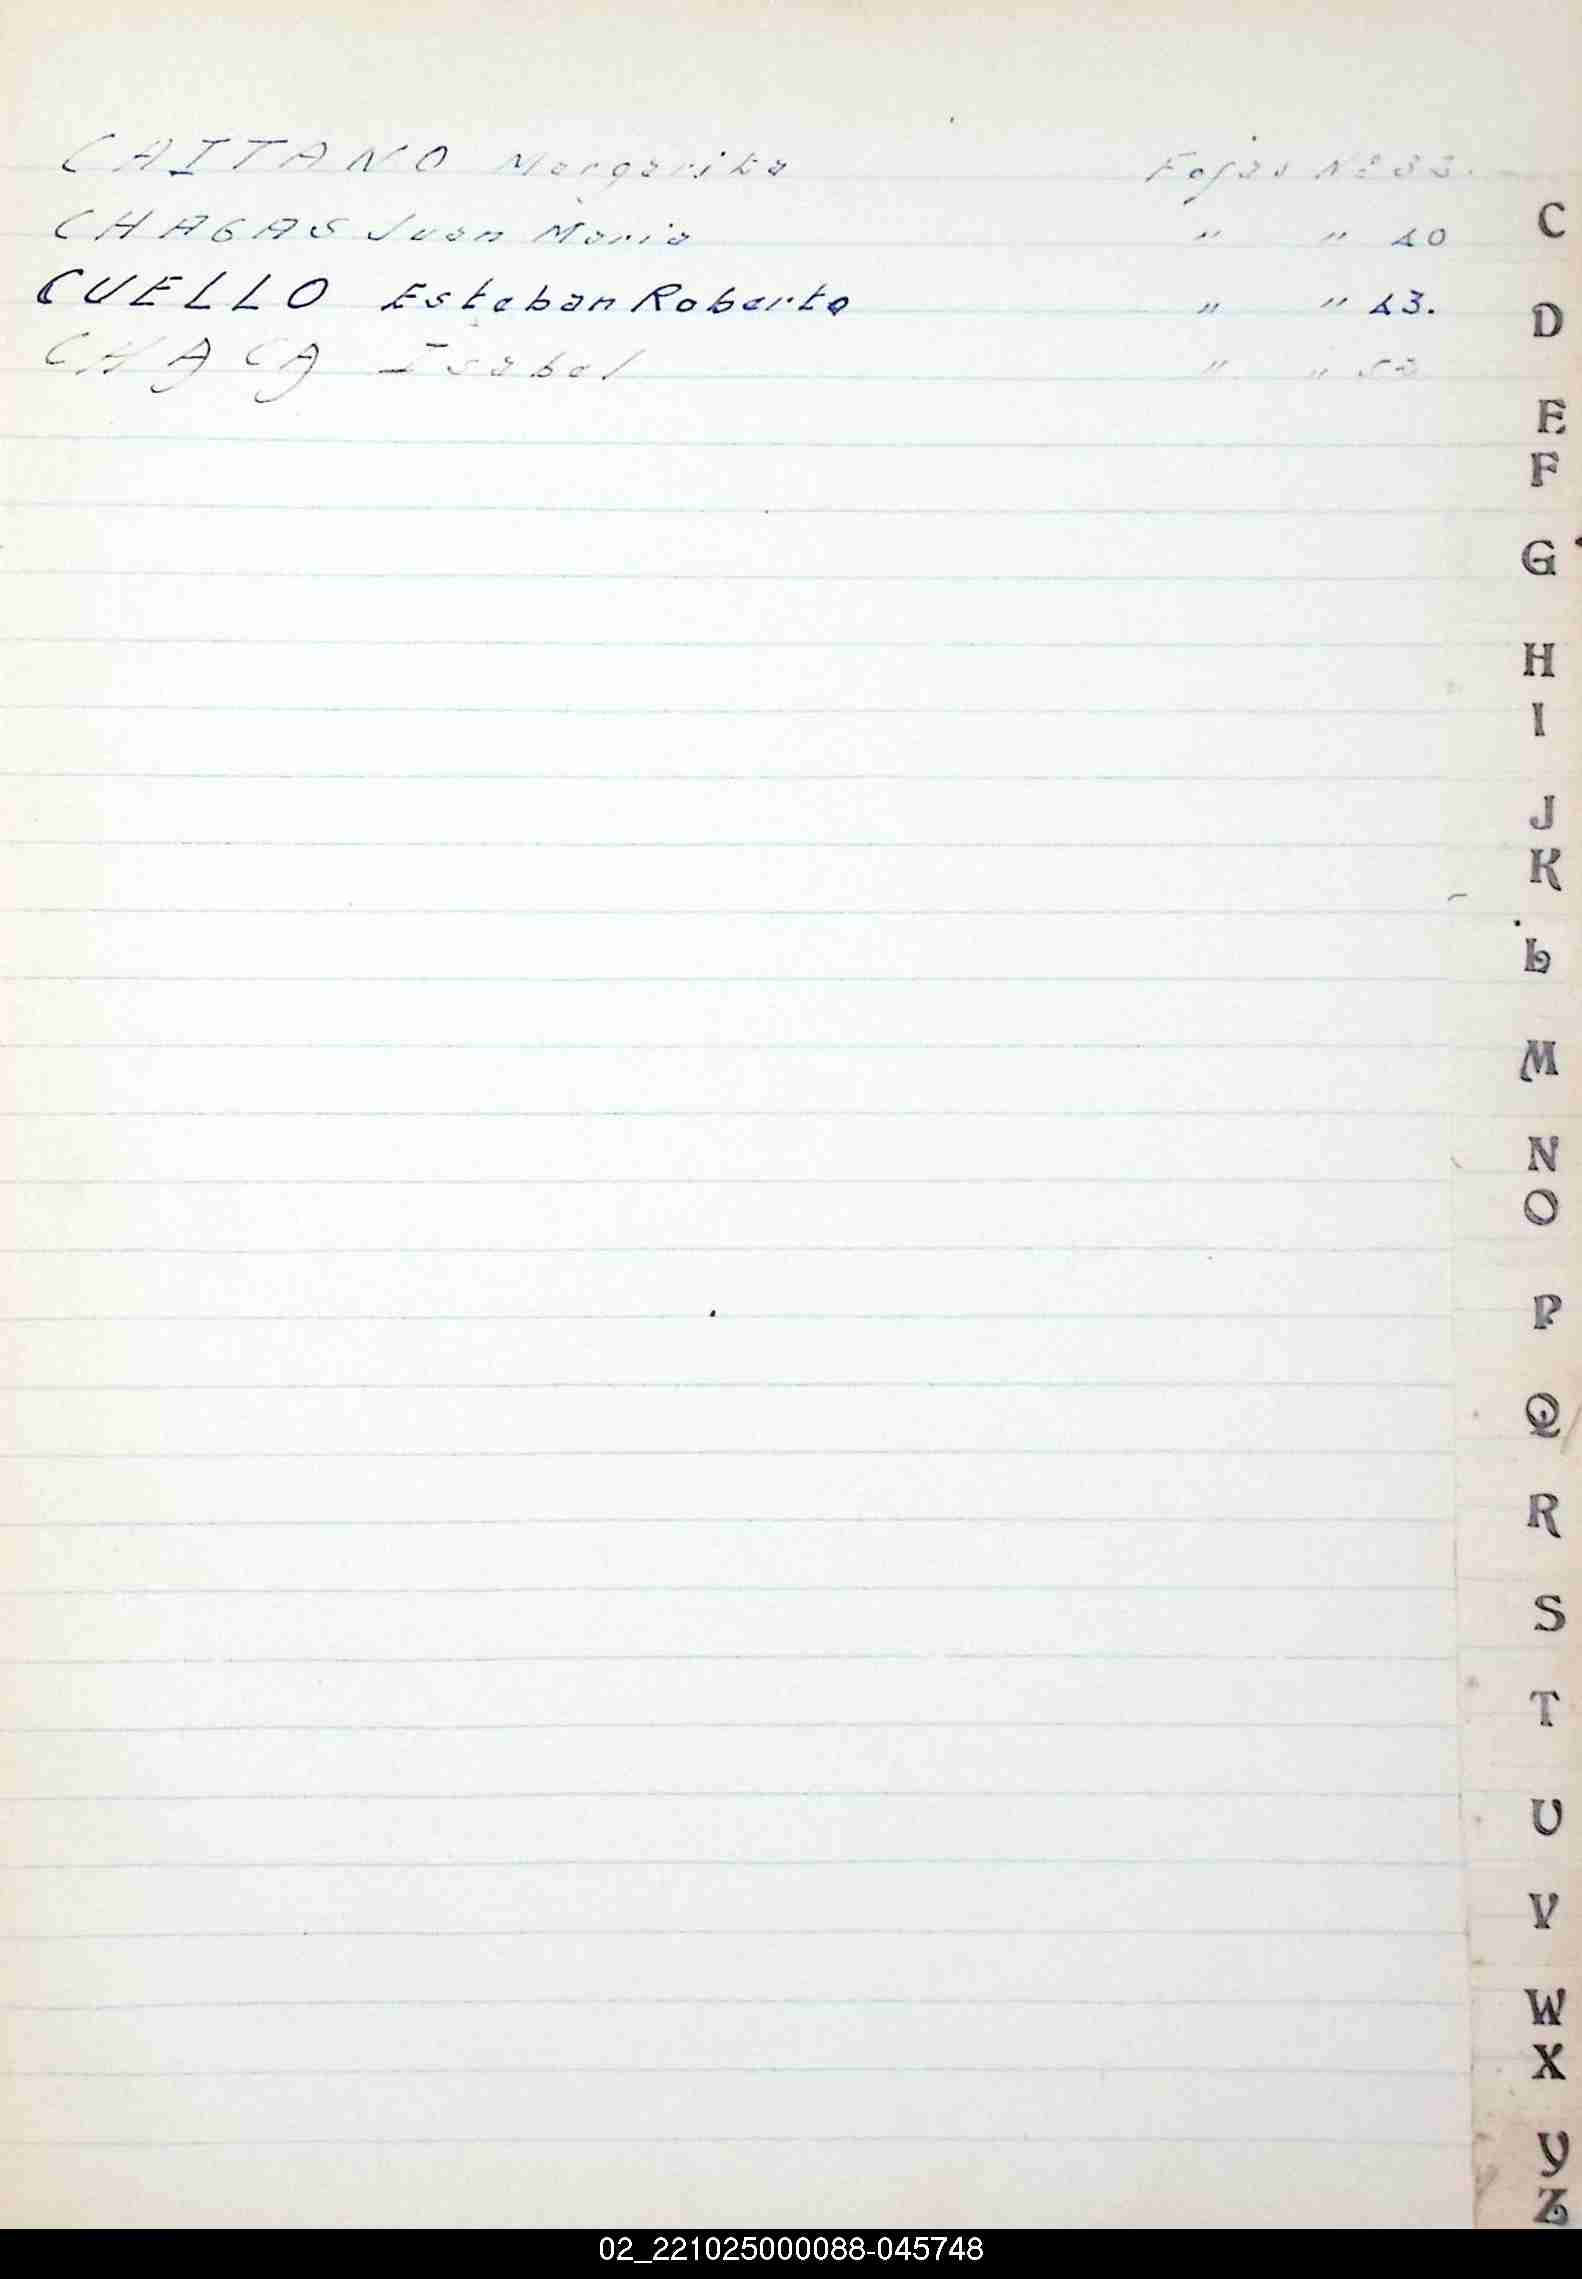 CAITANO Margarita Fojas Nº 33.
CHAGAS Juan Maria " " 40
CUELLO Esteban Roberto " " 43.
CHACA Isabel " "
C
D
E
F
G
H
I
J
K
L
M
N
O
P
Q
R
S
T
U
V
W
X
Y
Z
02_221025000088-045748